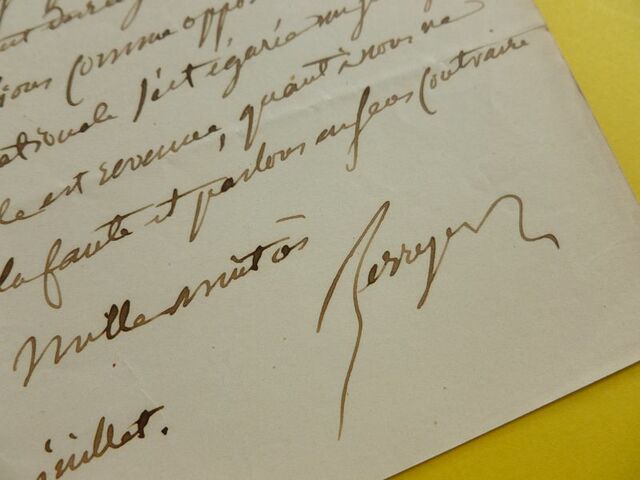 comme oppos
nationale s'est égarée
le est revenue, quant à nous ne
la faute et parlons en sens contraire
Mille amitiés Berryer
juillet.